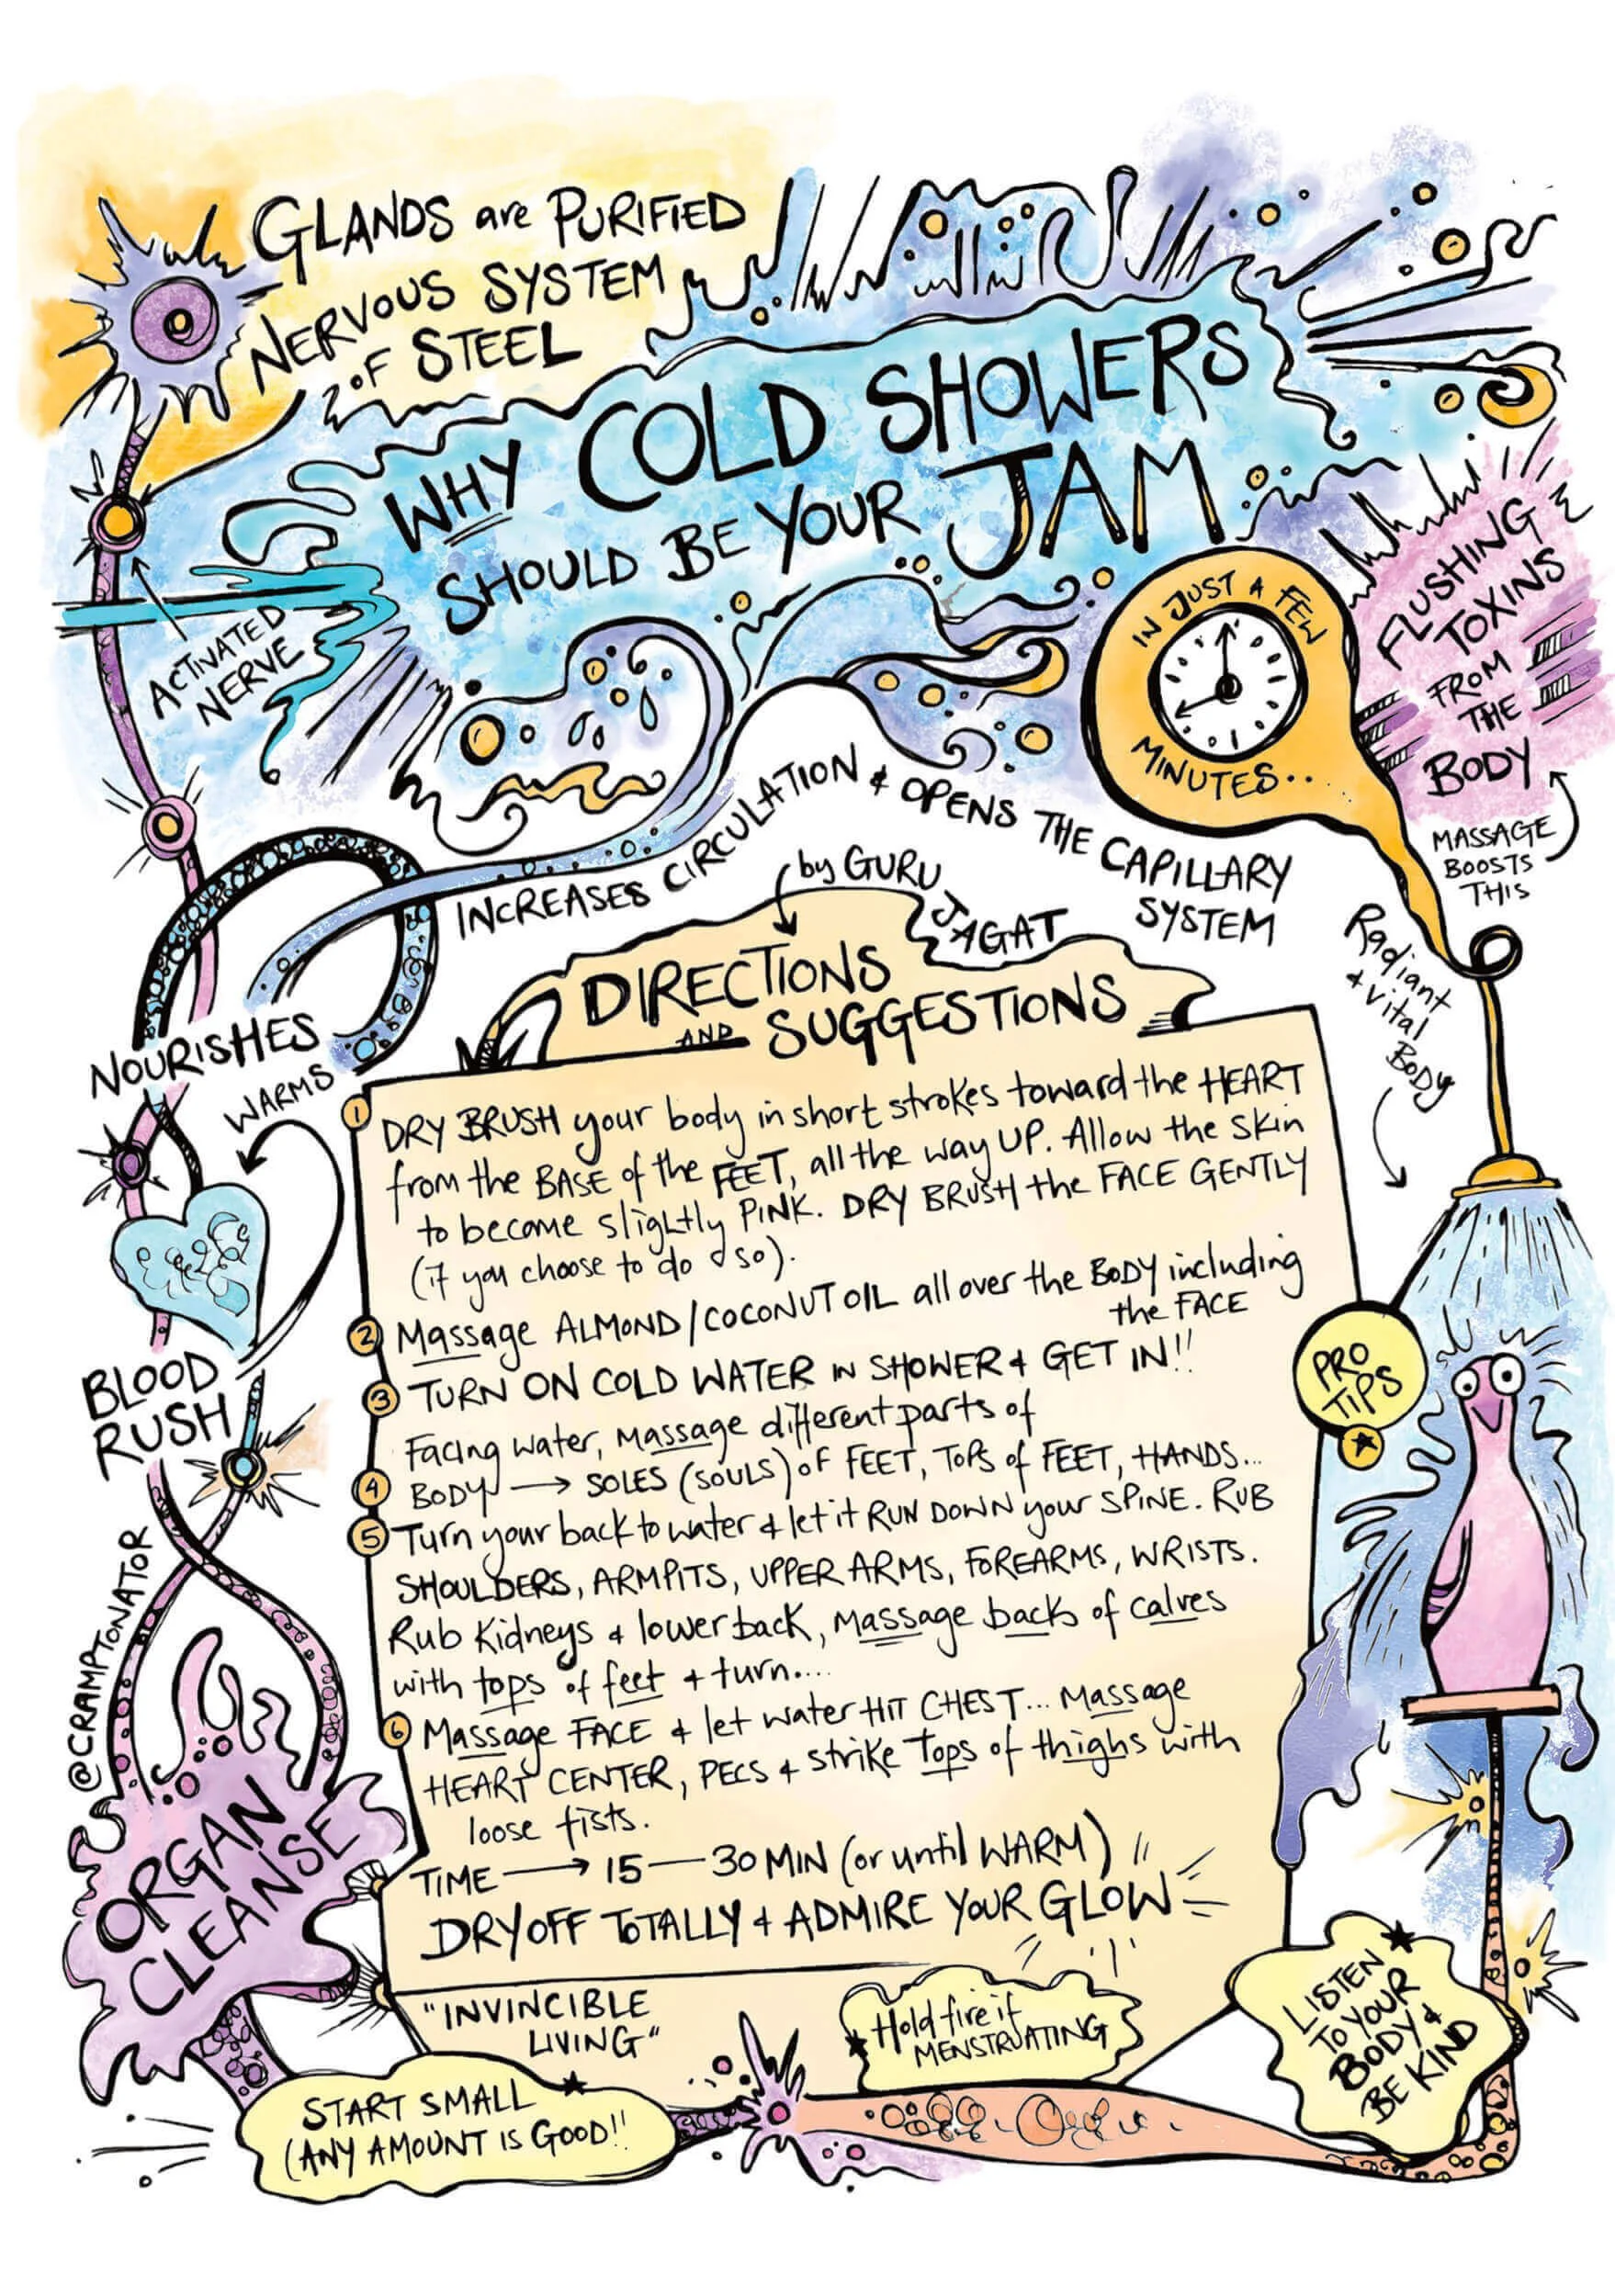 GLANDS are PURIFIED
NERVOUS SYSTEM
OF STEEL
WHY COLD SHOWERS
SHOULD BE YOUR JAM
ACTIVATED
NERVE
IN JUST A FEW
MINUTES...
FLUSHING
TOXINS
FROM
THE
BODY
MASSAGE
BOOSTS
THIS
INCREASES CIRCULATION & OPENS THE CAPILLARY
SYSTEM
by GURU
JAGAT
Radiant
& vital
BODY
NOURISHES
WARMS
BLOOD
RUSH
@CRAMPTONATOR
ORGAN
CLEANSE
DIRECTIONS
AND SUGGESTIONS
1 DRY BRUSH your body in short strokes toward the HEART
from the BASE of the FEET, all the way UP. Allow the skin
to become slightly PINK. DRY BRUSH the FACE GENTLY
(if you choose to do so).
2 Massage ALMOND/COCONUT OIL all over the BODY including
the FACE
3 TURN ON COLD WATER IN SHOWER & GET IN!!
Facing water, massage different parts of
4 BODY → SOLES (SOULS) OF FEET, TOPS of FEET, HANDS...
5 Turn your back to water & let it RUN DOWN your SPINE. RUB
SHOULDERS, ARMPITS, UPPER ARMS, FOREARMS, WRISTS.
Rub Kidneys & lower back, massage backs of calves
with tops of feet & turn....
6 Massage FACE & let water HIT CHEST... Massage
HEART CENTER, PECS & strike Tops of thighs with
loose fists.
TIME → 15 — 30 MIN (or until WARM)
DRY OFF TOTALLY & ADMIRE YOUR GLOW
"INVINCIBLE
LIVING"
PRO
TIPS
START SMALL
(ANY AMOUNT IS GOOD!!
Hold fire if
MENSTRUATING
LISTEN
TO YOUR
BODY &
BE KIND